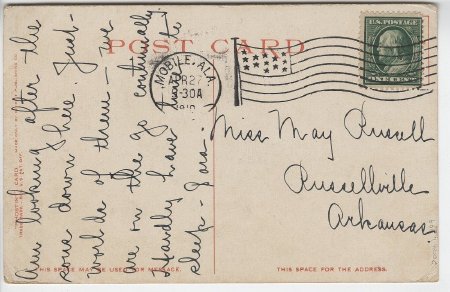 POST CARD
U.S. POSTAGE
ONE CENT
MOBILE, ALA
APR 27
30A
Am looking after the
sons down here. Just
are on the go continually.
Hardly have time to
sleep.
Miss May Russell
Russellville
Arkansas.
THIS SPACE MAY BE USED FOR MESSAGE.
THIS SPACE FOR THE ADDRESS.